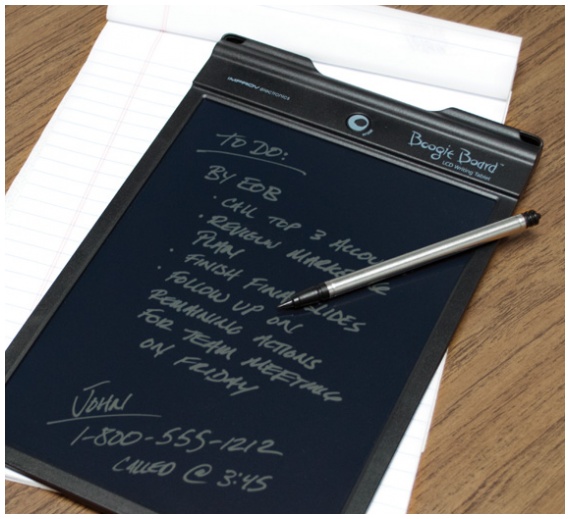 IMPROV ELECTRONICS
Boogie Board™
LCD Writing Tablet
TO DO:
BY EOB
· CALL TOP 3
· REVIEW
PLAN
· FINISH
· FOLLOW UP ON
REMAINING ACTIONS
FOR TEAM MEETING
ON FRIDAY
JOHN
1-800-555-1212
CALLED @ 3:45